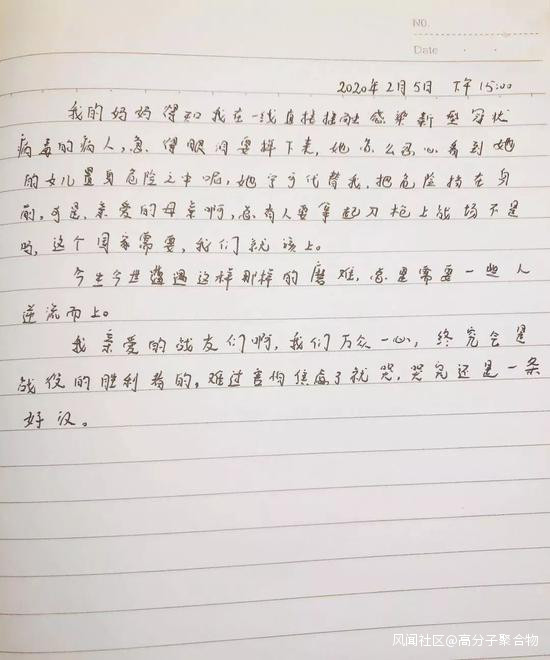 NO.
Date
2020年2月5日 下午15:00
我的妈妈得知我在一线直接接触感染新型冠状
病毒的病人,急得眼泪要掉下来,她怎么忍心看到她
的女儿置身危险之中呢,她宁可代替我,把危险挡在身
前,可是,亲爱的母亲啊,总有人要拿起刀枪上战场不是
吗,这个国家需要,我们就该上。
今生今世遭遇这样那样的磨难,总是需要一些人
逆流而上。
我亲爱的战友们啊,我们万众一心,终究会是
战役的胜利者的,难过害怕焦虑了就哭,哭完还是一条
好汉。
风闻社区@高分子聚合物